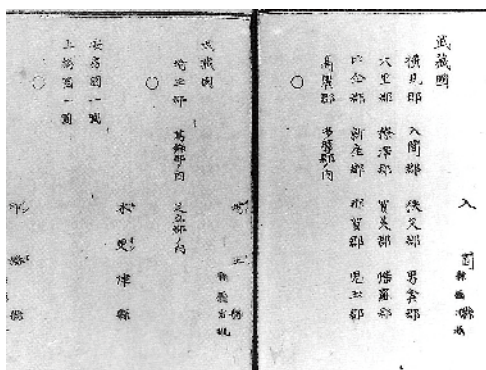 武蔵國
横見郡 入間郡 秩父郡 男衾郡
大里郡 榛澤郡 賀美郡 幡羅郡
比企郡 新座郡 那賀郡 児玉郡
高麗郡 多摩郡ノ内
入間縣
武蔵國
埼玉郡 葛飾郡ノ内 足立郡ノ内
埼玉縣
安房國一圓
上総國一圓
木更津縣